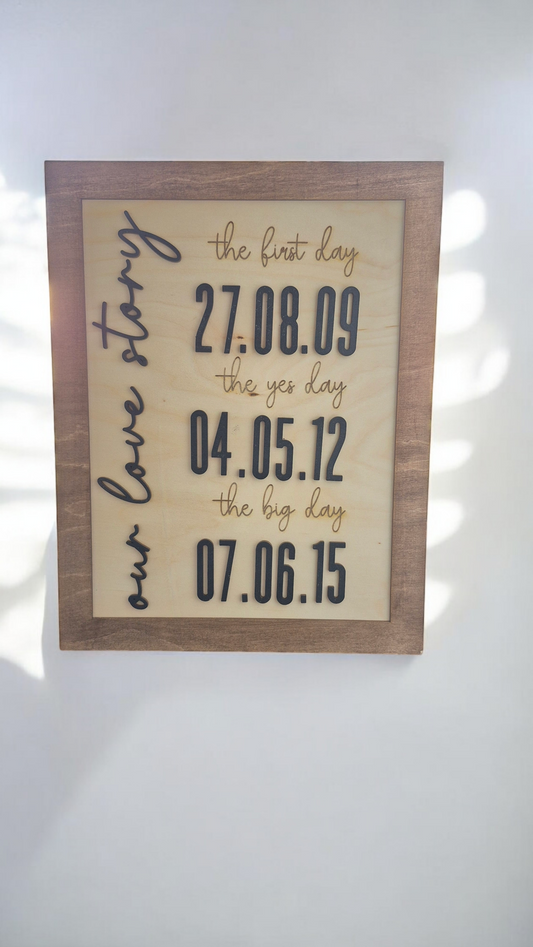 our love story
the first day
27.08.09
the yes day
04.05.12
the big day
07.06.15